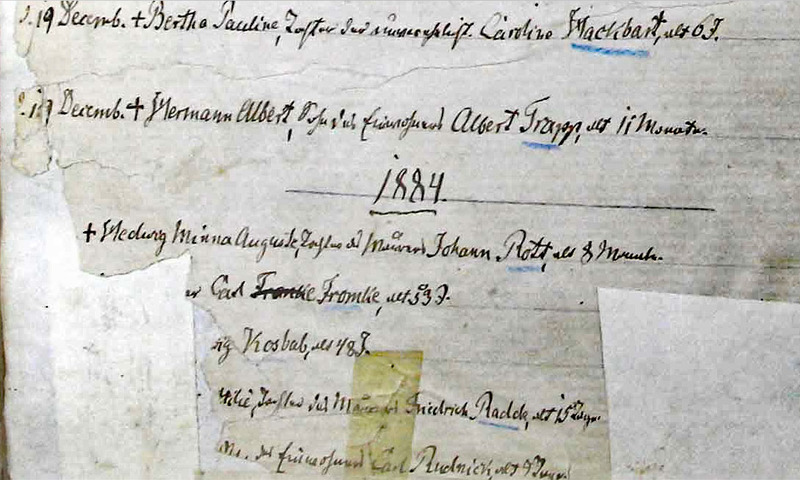 19 Decemb. + Bertha Pauline, Tochter der unverehelicht. Caroline Wackbart, alt 6 J.
19 Decemb. + Hermann Albert, Sohn des Einwohners Albert Trapp, alt 11 Monate.
1884.
+ Hedwig Minna Auguste, Tochter des Maurers Johann Rott, alt 8 Monate.
Carl Fromke, alt 53 J.
Kosbab, alt 48 J.
Tochter des Friedrich Radde, alt 15 Tage.
des Einwohners Carl Rudnick, alt